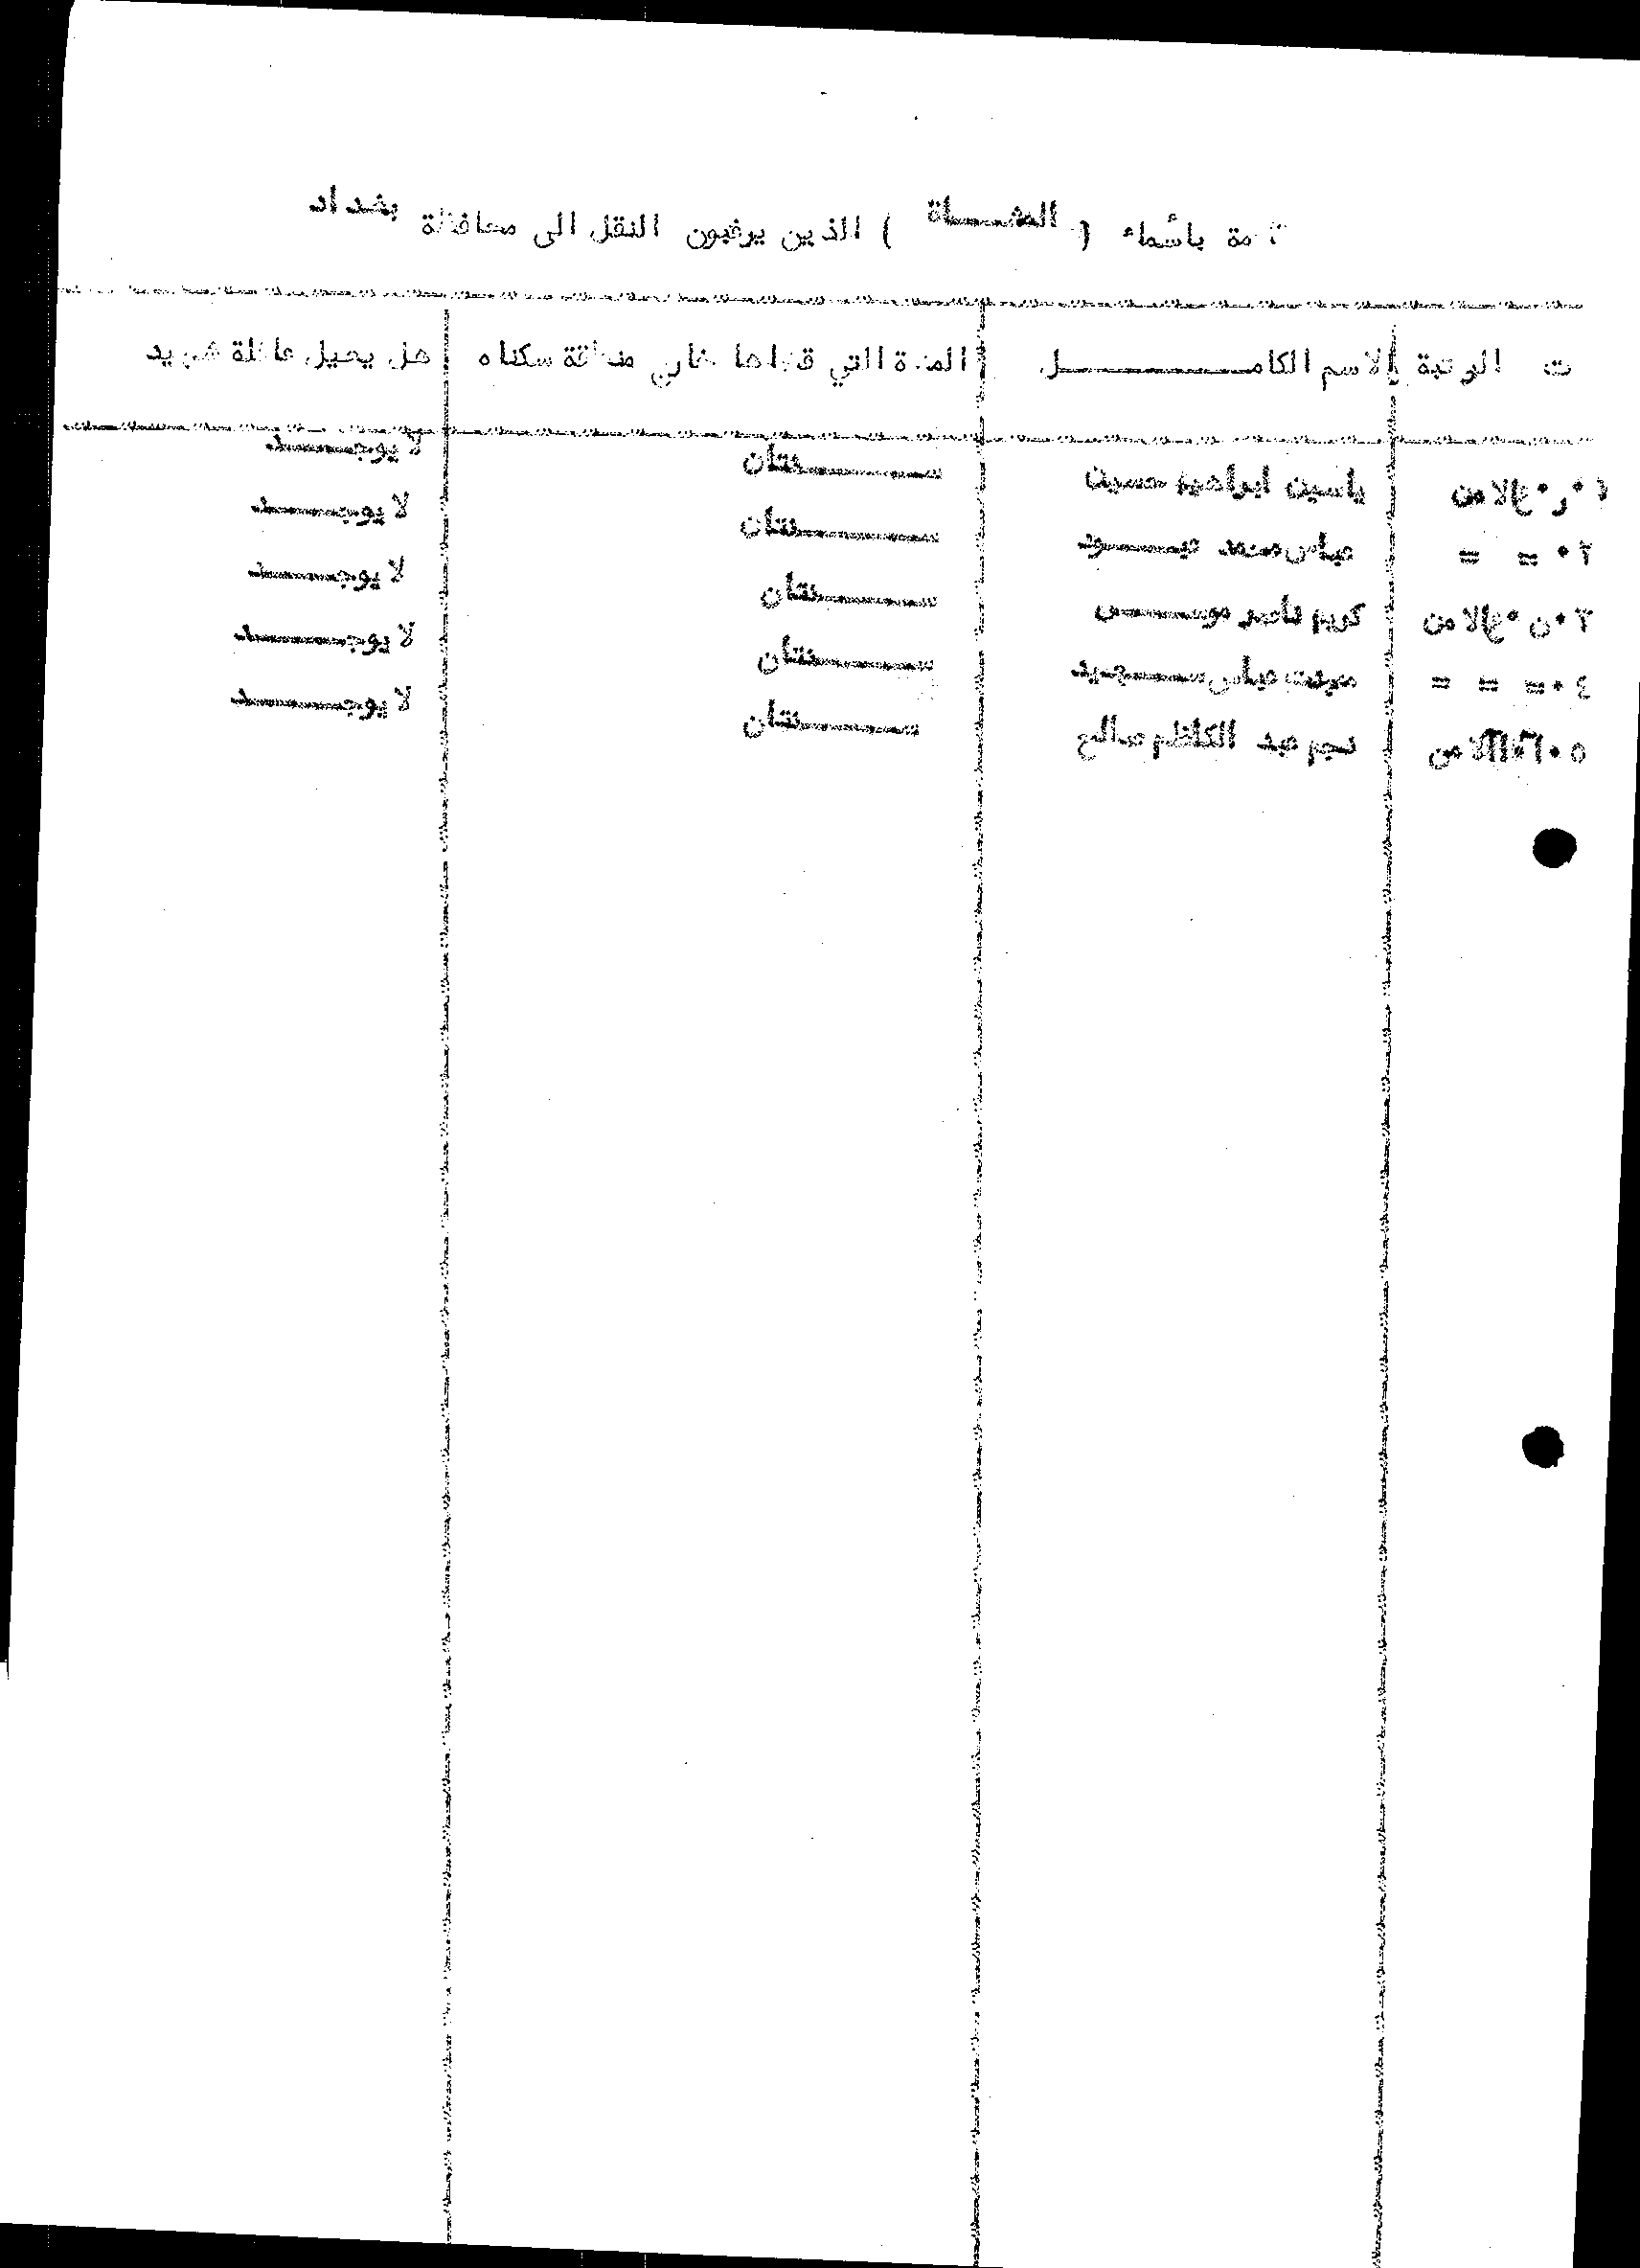 قائمة بأسماء ( المشــاة ) الذين يرغبون النقل الى محافظة بغداد
ت الرتبة الاسم الكامــــــــل المدة التي قضاها خارج منطقة سكناه هل يعيل عائلة شهيد
١٠ر٠ع الامن ياسين ابراهيم حسين ســــنتان لا يوجــــد
٢٠ = = عباس محمد ــود ســــنتان لا يوجــــد
٣٠ن٠ع الامن كريم ناصر موســــى ســــنتان لا يوجــــد
٤٠= = = عباس ســــنتان لا يوجــــد
٥٠ الامن نجم عبد الكاظم صالح ســــنتان لا يوجــــد